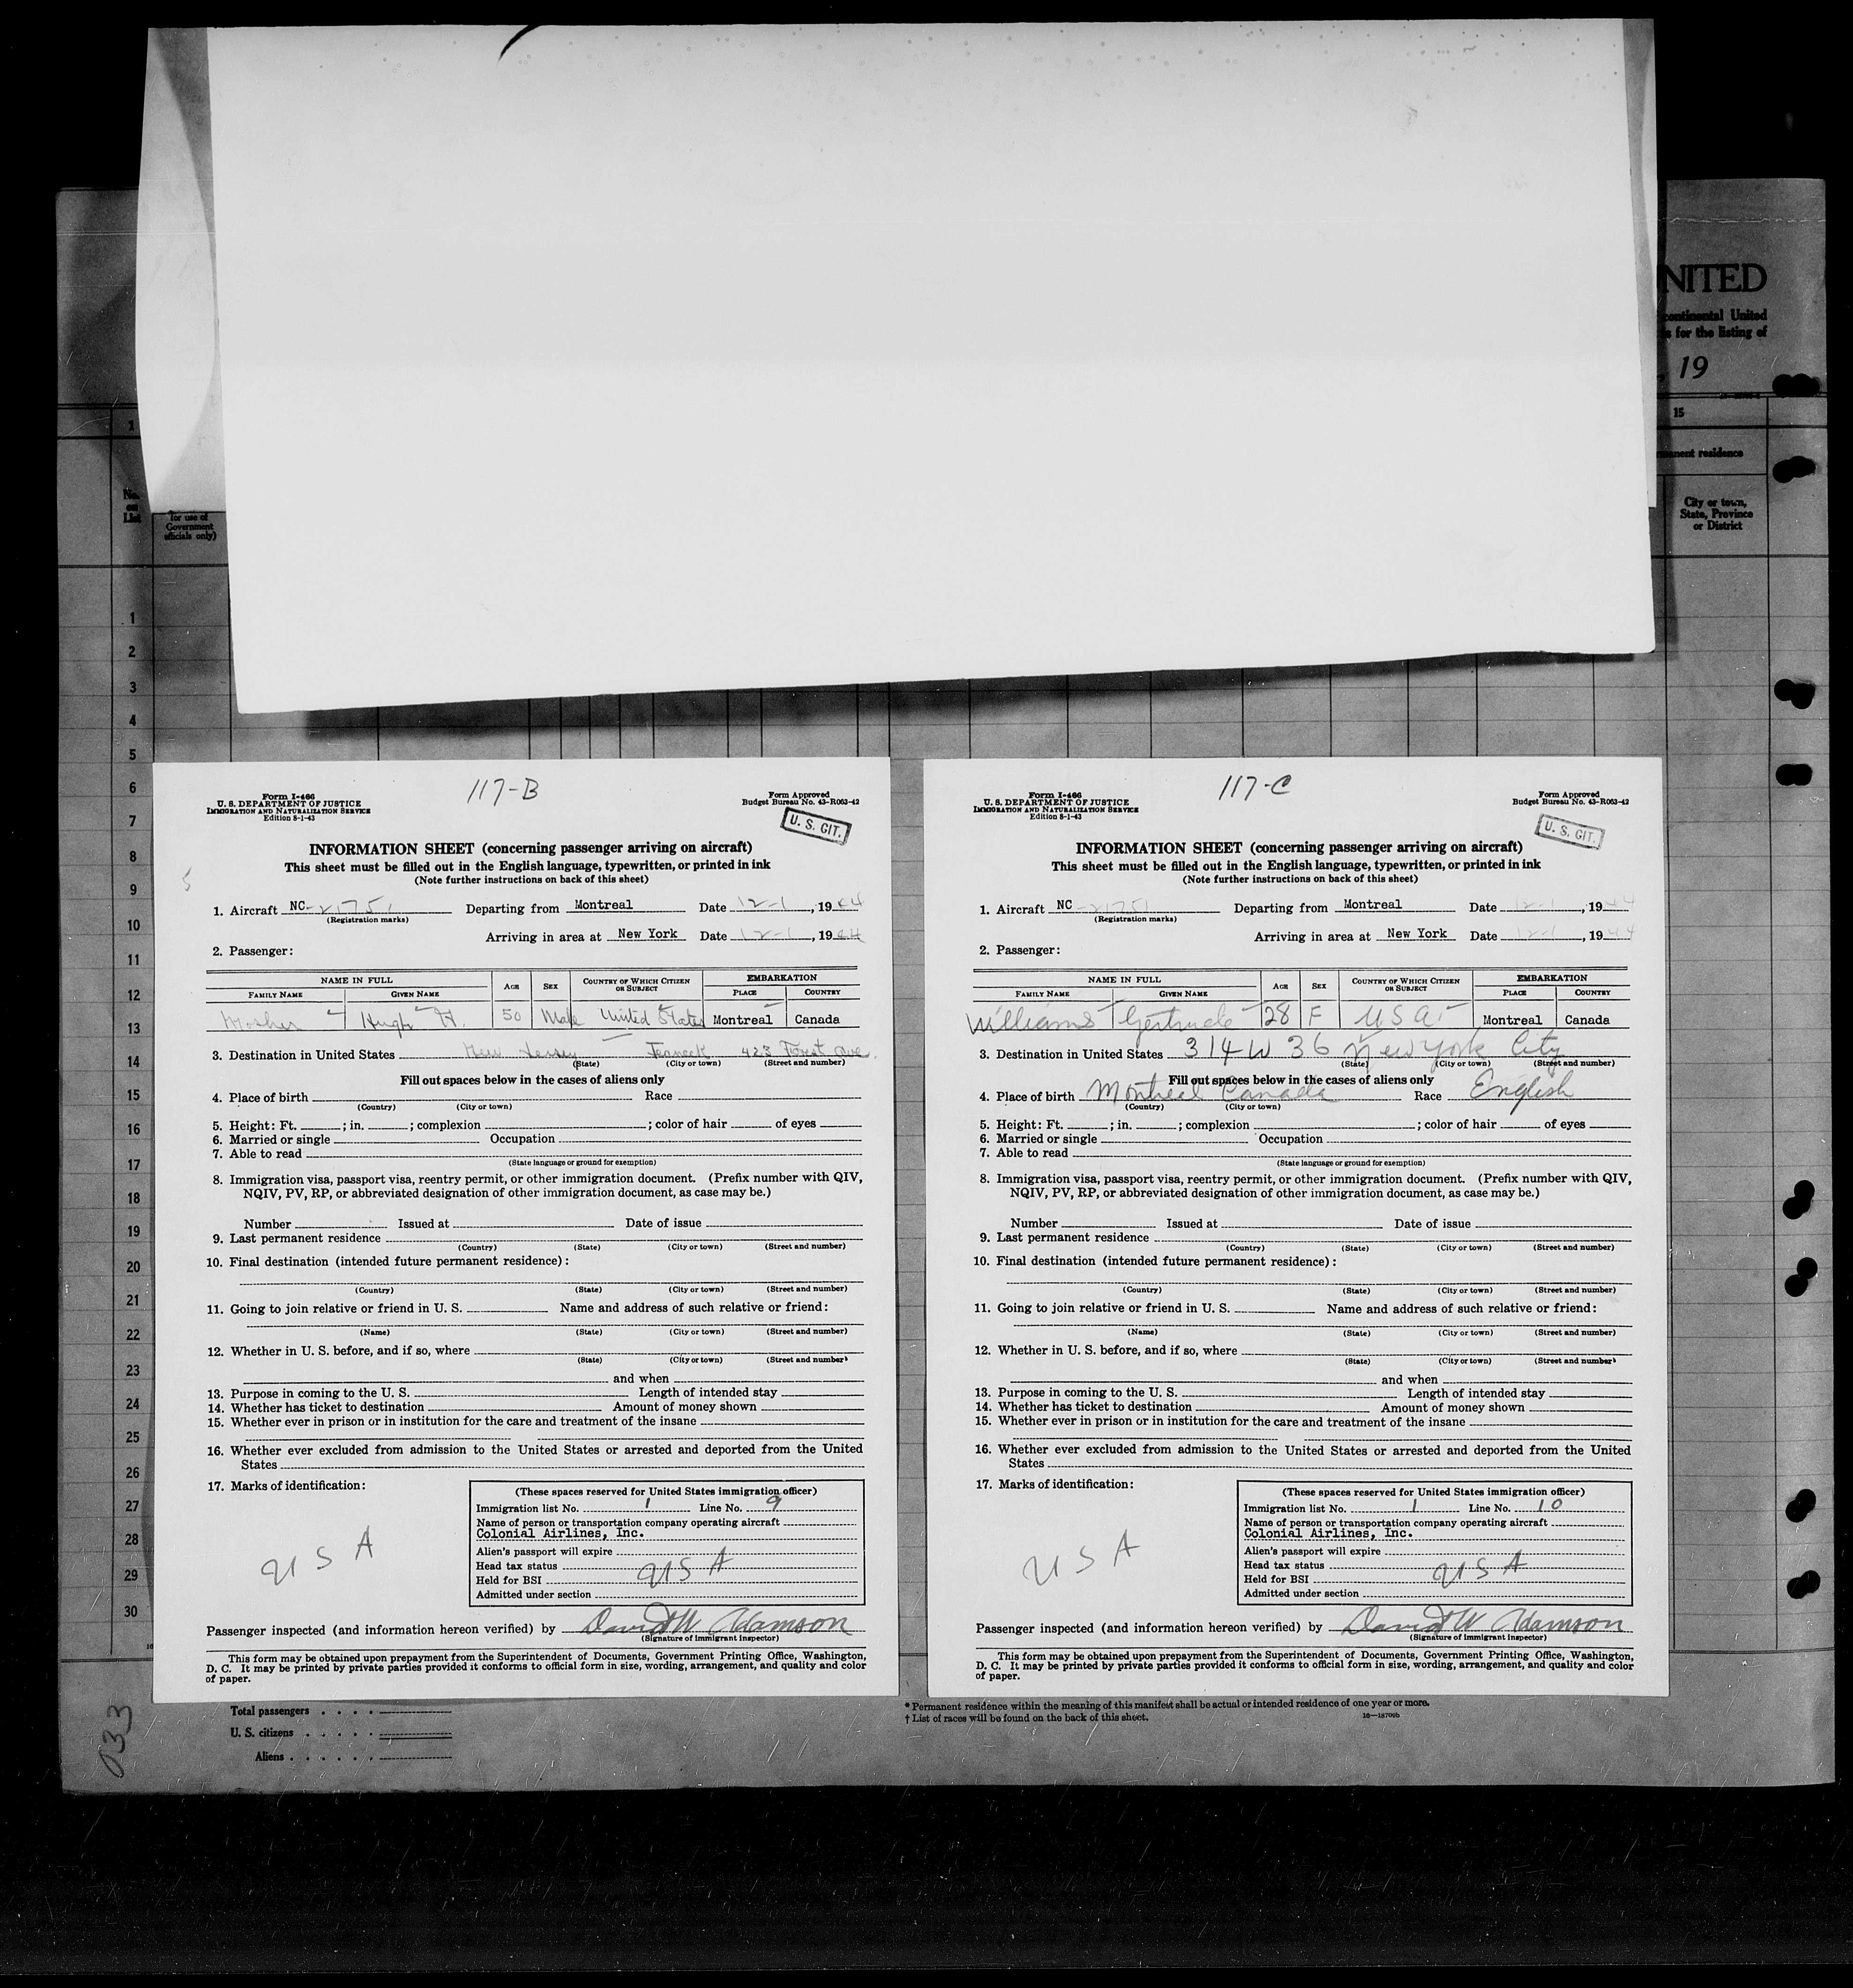 NITED
continental United
s for the listing of
, 19
1
15
manent residence
No. on List
for use of Government officials only)
City or town, State, Province or District
1
2
3
4
5
6
7
8
9
10
11
12
13
14
15
16
17
18
19
20
21
22
23
24
25
26
27
28
29
30
117-B
Form I-466
U. S. DEPARTMENT OF JUSTICE
IMMIGRATION AND NATURALIZATION SERVICE
Edition 8-1-43
Form Approved
Budget Bureau No. 43-R063-42
U. S. CIT.
INFORMATION SHEET (concerning passenger arriving on aircraft)
This sheet must be filled out in the English language, typewritten, or printed in ink
(Note further instructions on back of this sheet)
1. Aircraft NC-21751 Departing from Montreal Date 12-1, 1944
(Registration marks)
Arriving in area at New York Date 12-1, 1944
2. Passenger:
NAME IN FULL AGE SEX COUNTRY OF WHICH CITIZEN OR SUBJECT EMBARKATION
FAMILY NAME GIVEN NAME PLACE COUNTRY
Mosher Hugh H. 50 Male United States Montreal Canada
3. Destination in United States New Jersey Teaneck 423 Forest Ave.
(State) (City or town) (Street and number)
Fill out spaces below in the cases of aliens only
4. Place of birth Race
(Country) (City or town)
5. Height: Ft. ; in. ; complexion ; color of hair of eyes
6. Married or single Occupation
7. Able to read
(State language or ground for exemption)
8. Immigration visa, passport visa, reentry permit, or other immigration document. (Prefix number with QIV,
NQIV, PV, RP, or abbreviated designation of other immigration document, as case may be.)
Number Issued at Date of issue
9. Last permanent residence
(Country) (State) (City or town) (Street and number)
10. Final destination (intended future permanent residence):
(Country) (State) (City or town) (Street and number)
11. Going to join relative or friend in U. S. Name and address of such relative or friend:
(Name) (State) (City or town) (Street and number)
12. Whether in U. S. before, and if so, where
(State) (City or town) (Street and number)
and when
13. Purpose in coming to the U. S. Length of intended stay
14. Whether has ticket to destination Amount of money shown
15. Whether ever in prison or in institution for the care and treatment of the insane
16. Whether ever excluded from admission to the United States or arrested and deported from the United
States
17. Marks of identification:
U S A
(These spaces reserved for United States immigration officer)
Immigration list No. 1 Line No. 9
Name of person or transportation company operating aircraft
Colonial Airlines, Inc.
Alien's passport will expire
Head tax status
U S A
Held for BSI
Admitted under section
Passenger inspected (and information hereon verified) by David W Adamson
(Signature of immigrant inspector)
This form may be obtained upon prepayment from the Superintendent of Documents, Government Printing Office, Washington,
D. C. It may be printed by private parties provided it conforms to official form in size, wording, arrangement, and quality and color
of paper.
117-C
Form I-466
U. S. DEPARTMENT OF JUSTICE
IMMIGRATION AND NATURALIZATION SERVICE
Edition 8-1-43
Form Approved
Budget Bureau No. 43-R063-42
U. S. CIT.
INFORMATION SHEET (concerning passenger arriving on aircraft)
This sheet must be filled out in the English language, typewritten, or printed in ink
(Note further instructions on back of this sheet)
1. Aircraft NC-21751 Departing from Montreal Date 12-1, 1944
(Registration marks)
Arriving in area at New York Date 12-1, 1944
2. Passenger:
NAME IN FULL AGE SEX COUNTRY OF WHICH CITIZEN OR SUBJECT EMBARKATION
FAMILY NAME GIVEN NAME PLACE COUNTRY
Williams Gertrude 28 F U S A Montreal Canada
3. Destination in United States 314 W 36 New York City
(State) (City or town) (Street and number)
Fill out spaces below in the cases of aliens only
4. Place of birth Montreal Canada Race English
(Country) (City or town)
5. Height: Ft. ; in. ; complexion ; color of hair of eyes
6. Married or single Occupation
7. Able to read
(State language or ground for exemption)
8. Immigration visa, passport visa, reentry permit, or other immigration document. (Prefix number with QIV,
NQIV, PV, RP, or abbreviated designation of other immigration document, as case may be.)
Number Issued at Date of issue
9. Last permanent residence
(Country) (State) (City or town) (Street and number)
10. Final destination (intended future permanent residence):
(Country) (State) (City or town) (Street and number)
11. Going to join relative or friend in U. S. Name and address of such relative or friend:
(Name) (State) (City or town) (Street and number)
12. Whether in U. S. before, and if so, where
(State) (City or town) (Street and number)
and when
13. Purpose in coming to the U. S. Length of intended stay
14. Whether has ticket to destination Amount of money shown
15. Whether ever in prison or in institution for the care and treatment of the insane
16. Whether ever excluded from admission to the United States or arrested and deported from the United
States
17. Marks of identification:
U S A
(These spaces reserved for United States immigration officer)
Immigration list No. 1 Line No. 10
Name of person or transportation company operating aircraft
Colonial Airlines, Inc.
Alien's passport will expire
Head tax status
U S A
Held for BSI
Admitted under section
Passenger inspected (and information hereon verified) by David W Adamson
(Signature of immigrant inspector)
This form may be obtained upon prepayment from the Superintendent of Documents, Government Printing Office, Washington,
D. C. It may be printed by private parties provided it conforms to official form in size, wording, arrangement, and quality and color
of paper.
033
Total passengers
U. S. citizens
Aliens
* Permanent residence within the meaning of this manifest shall be actual or intended residence of one year or more.
† List of races will be found on the back of this sheet.
16—18709b